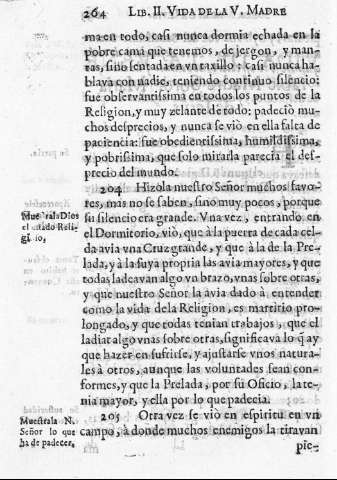 264 LIB. II. VIDA DE LA V. MADRE
ma en todo, casi nunca dormia echada en la
pobre cama que tenemos, de jergon, y man-
tas, sino sentada en vn taxillo; casi nunca ha-
blava con nadie, teniendo continuo silencio:
fue observantissima en todos los puntos de la
Religion, y muy zelante de todo: padeciò mu-
chos desprecios, y nunca se viò en ella falta de
paciencia: fue obedientissima, humildissima,
y pobrissima, que solo mirarla parecia el des-
precio del mundo.
204 Hizola nuestro Señor muchos favo-
res, mas no se saben, sino muy pocos, porque
su silencio era grande. Vna vez, entrando en
el Dormitorio, viò, que à la puerta de cada cel-
da avia vna Cruz grande, y que à la de la Pre-
lada, y à la suya propria las avia mayores, y que
todas ladeavan algo vn brazo, vnas sobre otras,
y que nuestro Señor la avia dado à entender
como la vida de la Religion, es martirio pro-
longado, y que todas tenian trabajos, que el
ladiar algo vnas sobre otras, significava lo q̃ ay
que hazer en sufrirse, y ajustarse vnos natura-
les à otros, aunque las voluntades sean con-
formes, y que la Prelada, por su Oficio, la te-
nia mayor, y ella por lo que padecia.
205 Otra vez se viò en espiritu en vn
campo, à donde muchos enemigos la tiravan
pie-
Muestrala Dios
el estado Reli-
gioso,
Muestrala N.
Señor lo que
ha de padecer,